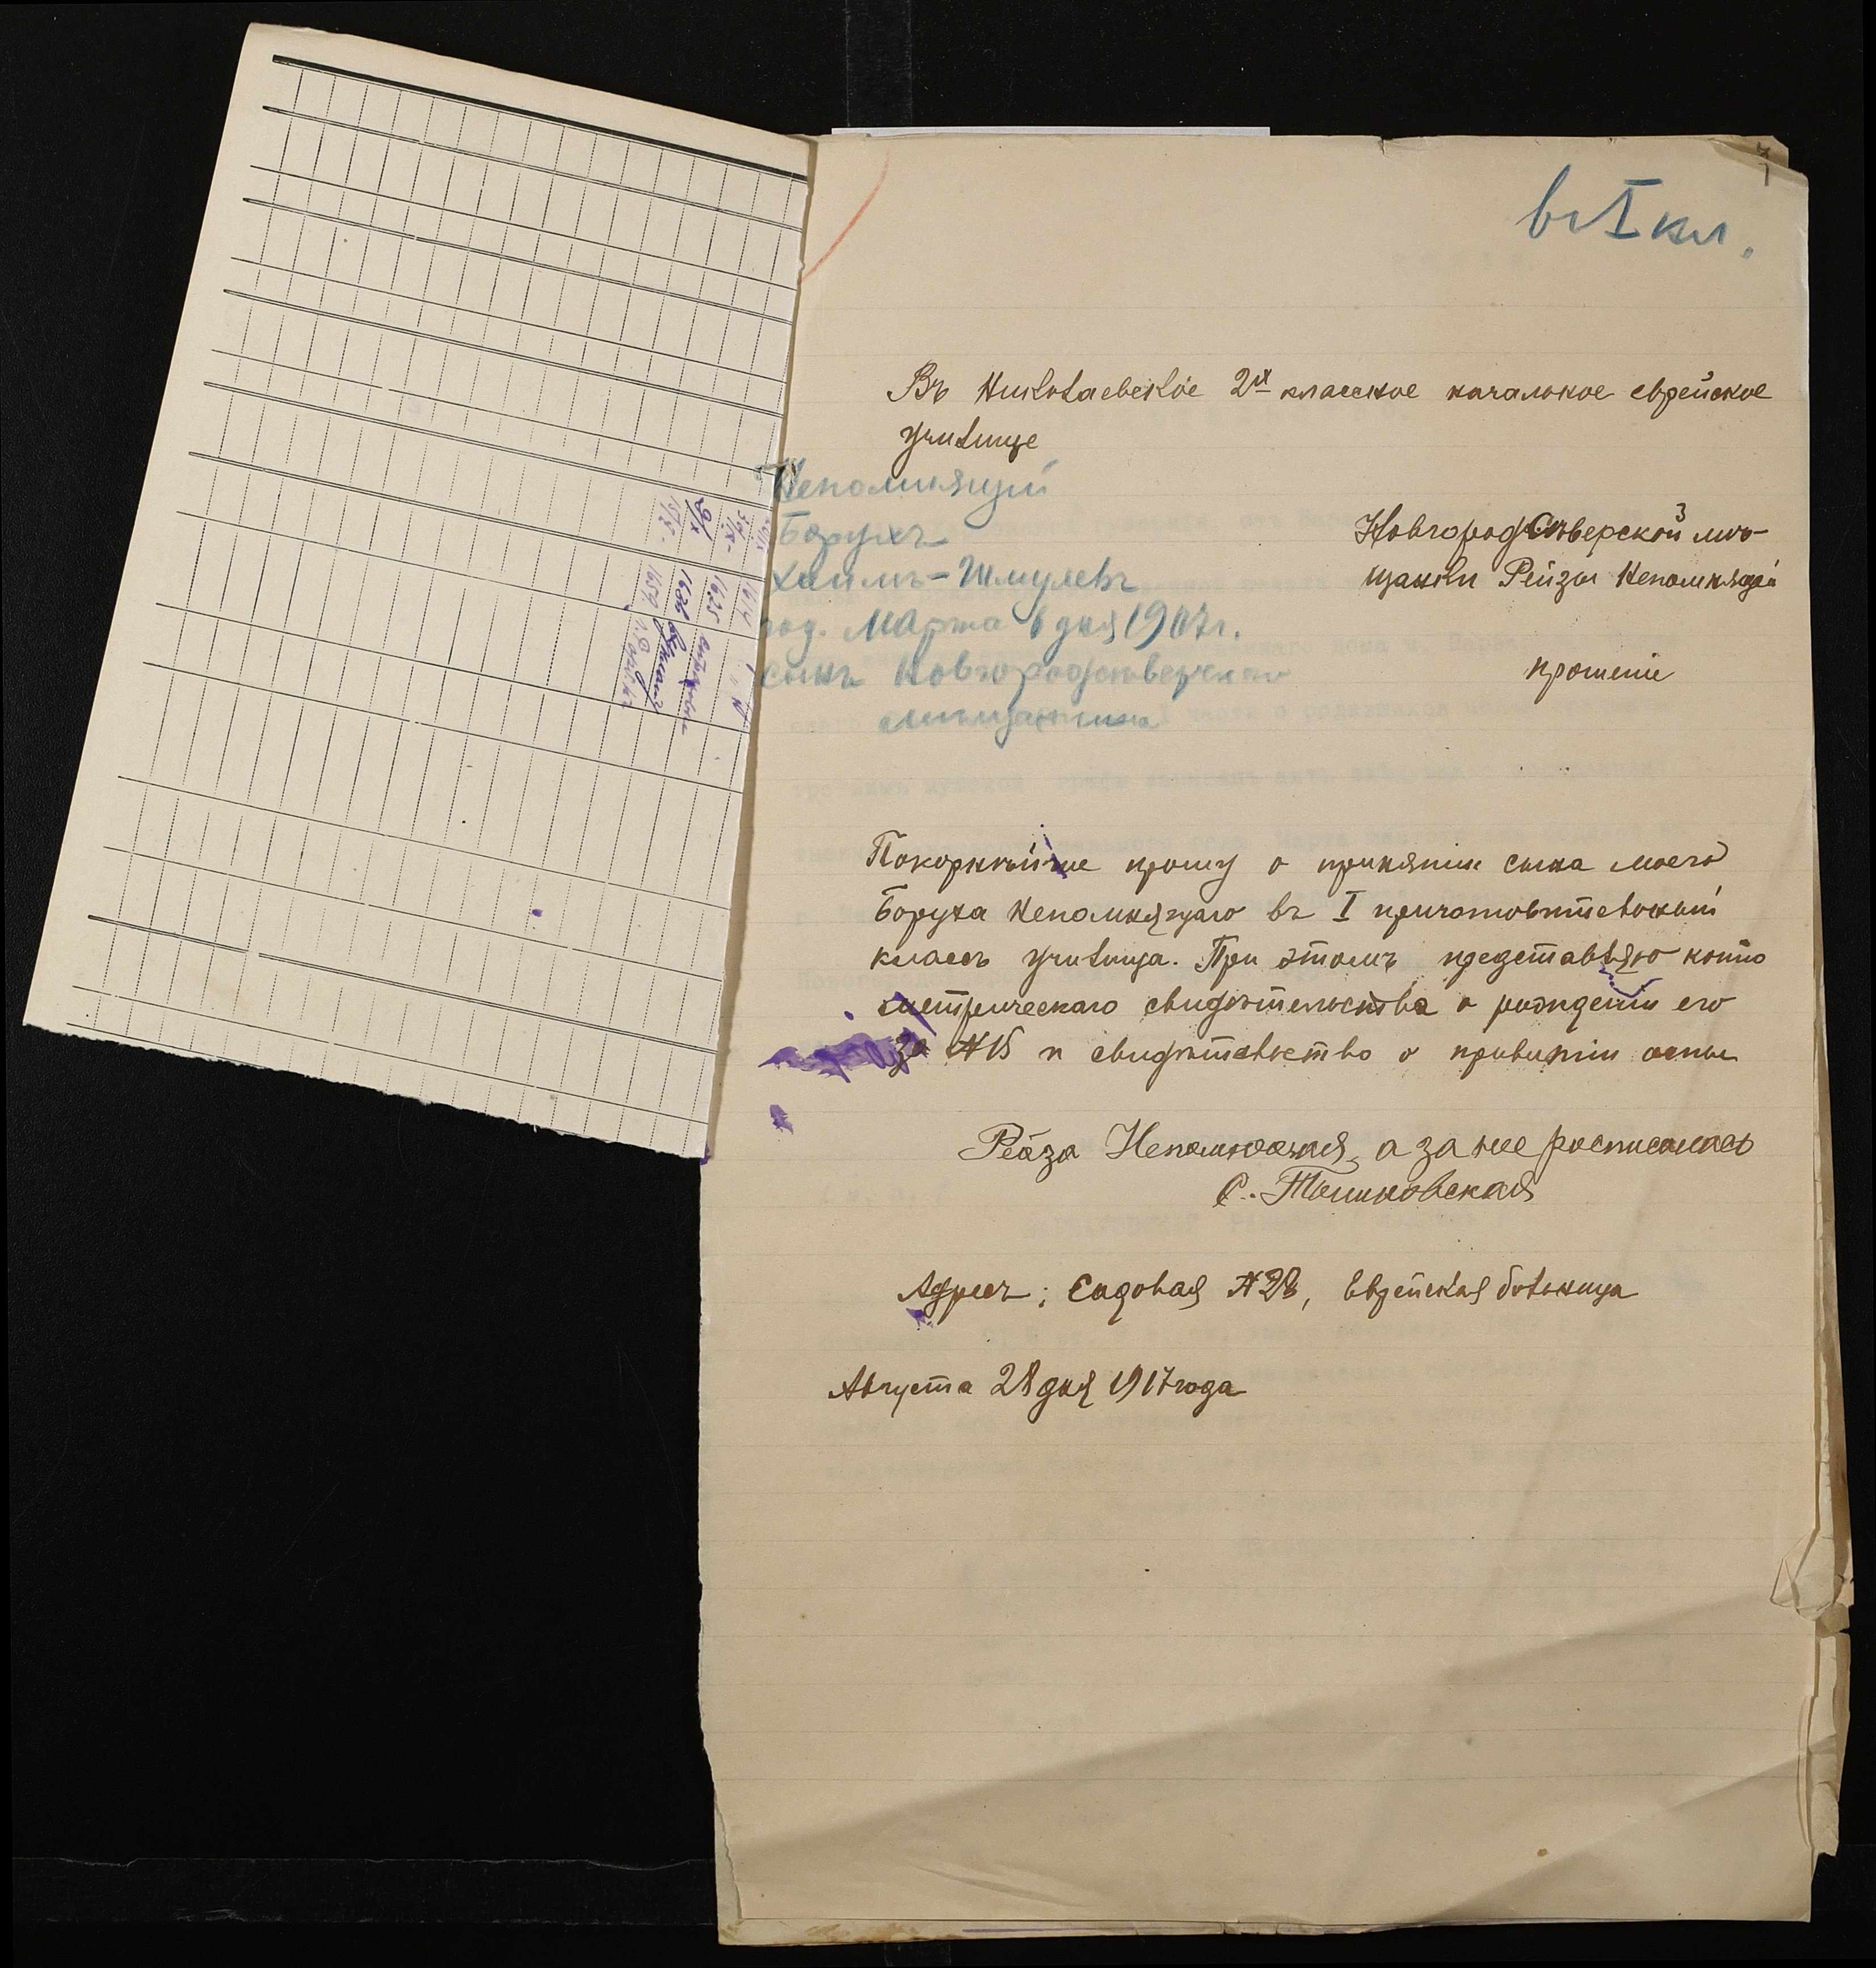 7
въ I кл.
Въ Николаевское 2х классное начальное еврейское
училище
Непомнящій
Борухъ
Хаимъ-Шмулевъ
род. Марта 6 дня 1907 г.
сынъ Новгородсѣверскаго
мѣщанина
Новгородсѣверской мѣ-
щанки Рейзы Непомнящей
прошеніе
Покорнѣйше прошу о принятіи сына моего
Боруха Непомнящаго въ I приготовительный
классъ училища. При этомъ представляю копію
метрическаго свидѣтельства о рожденіи его
за №15 и свидѣтельство о привитіи оспы
Рейза Непомнящая, а за нее росписалась
С. Тошковская
Адресъ: Садовая №28, Еврейская больница
Августа 28 дня 1917 года
1614
1625
1636